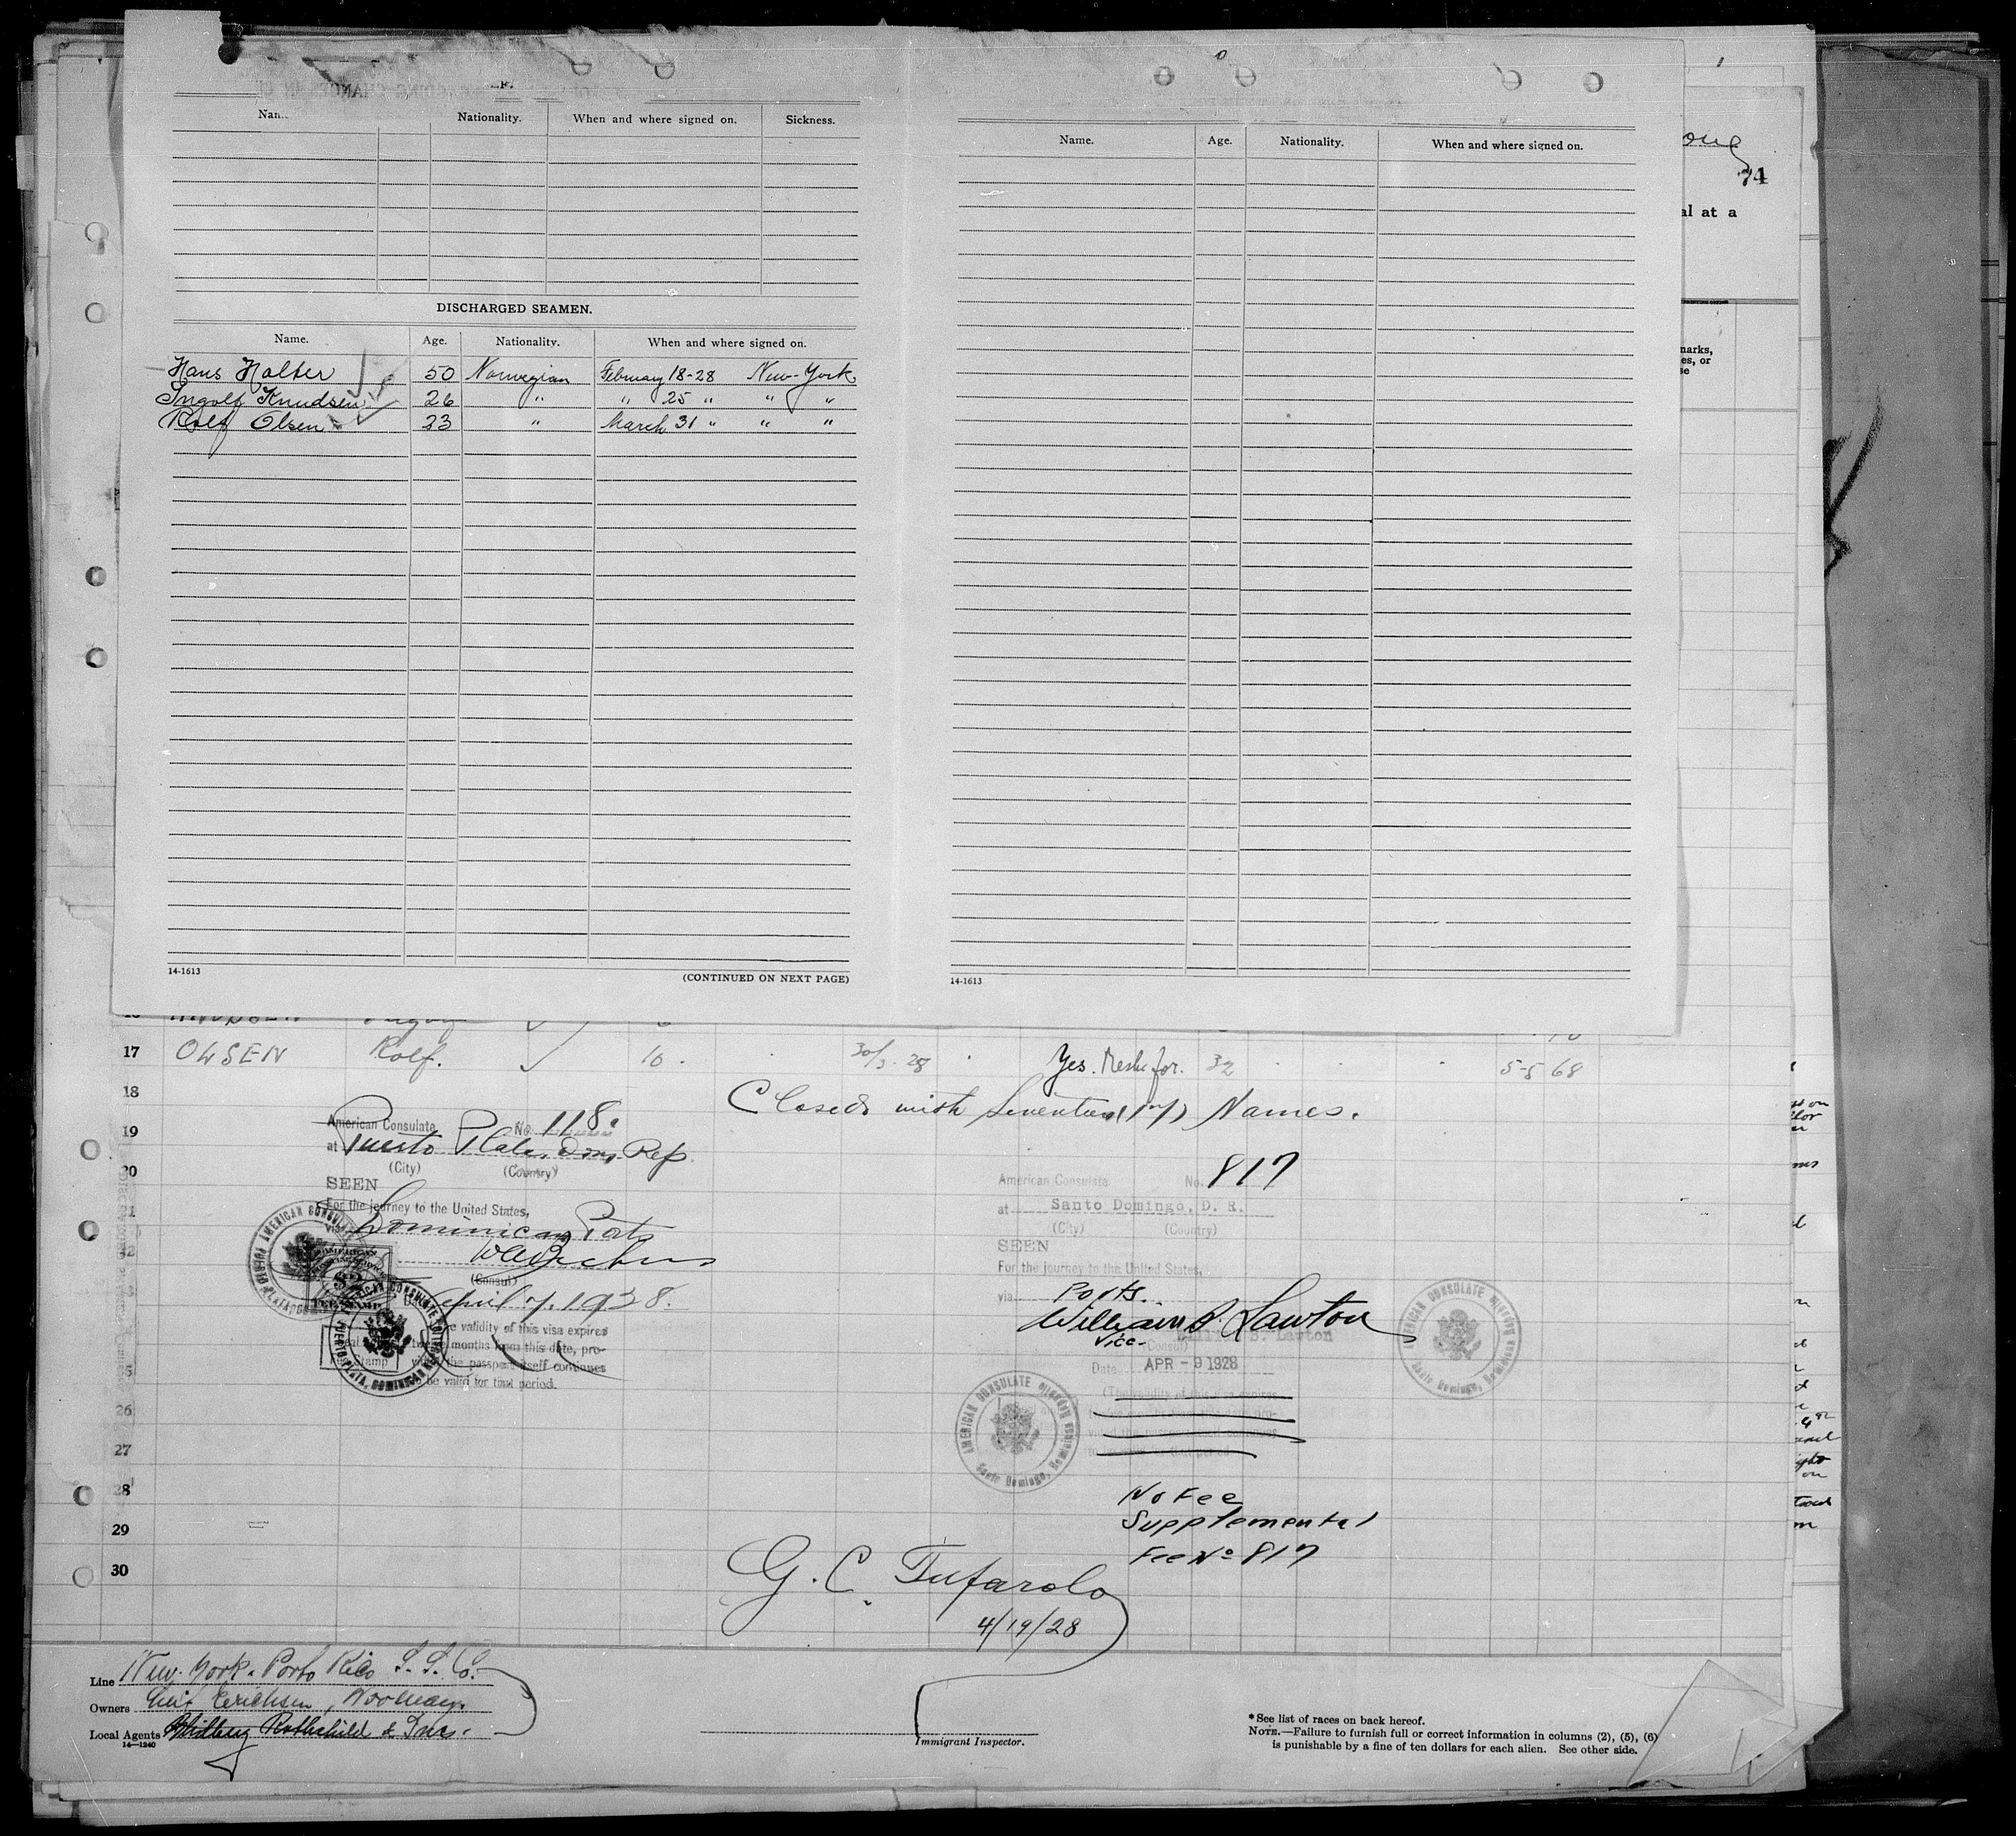 Nationality. When and where signed on. Sickness.
DISCHARGED SEAMEN.
Name. Age. Nationality. When and where signed on.
Hans Halter 50 Norwegian February 18-28 New-York
Ingolf Knudsen 26 " " 25 " " "
Rolf Olsen 23 " March 31 " " "
14-1613 (CONTINUED ON NEXT PAGE)
Name. Age. Nationality. When and where signed on.
14-1613
74
al at a
17 OLSEN Rolf. 10. 30/3-28 Yes. 32 5-8 68
18 Closed with seventeen (17) Names.
19
20
26
27
28
29
30
American Consulate No. 118.
at Puerto Plata, Dom. Rep.
(City) (Country)
SEEN
For the journey to the United States,
via Dominican Ports
(Consul)
April 7. 1928.
validity of this visa expires
months from this date, pro-
the passport itself continues
be valid for that period.
AMERICAN CONSULATE
PUERTO PLATA, DOMINICAN
American Consulate No. 817
at Santo Domingo, D. R.
(City) (Country)
SEEN
For the journey to the United States,
via Ports.
William B. Lawton
Vice-(Consul)
Date APR - 9 1928
AMERICAN CONSULATE
Santo Domingo,
No Fee
Supplemental
Fee No 817
G. C. Tufarolo
4/19/28
Line New-York-Porto Rico S. S. Co.
Owners Leif Erichsen, Norway.
Local Agents Rothchild &
14-1240
Immigrant Inspector.
*See list of races on back hereof.
NOTE.—Failure to furnish full or correct information in columns (2), (5), (6)
is punishable by a fine of ten dollars for each alien. See other side.